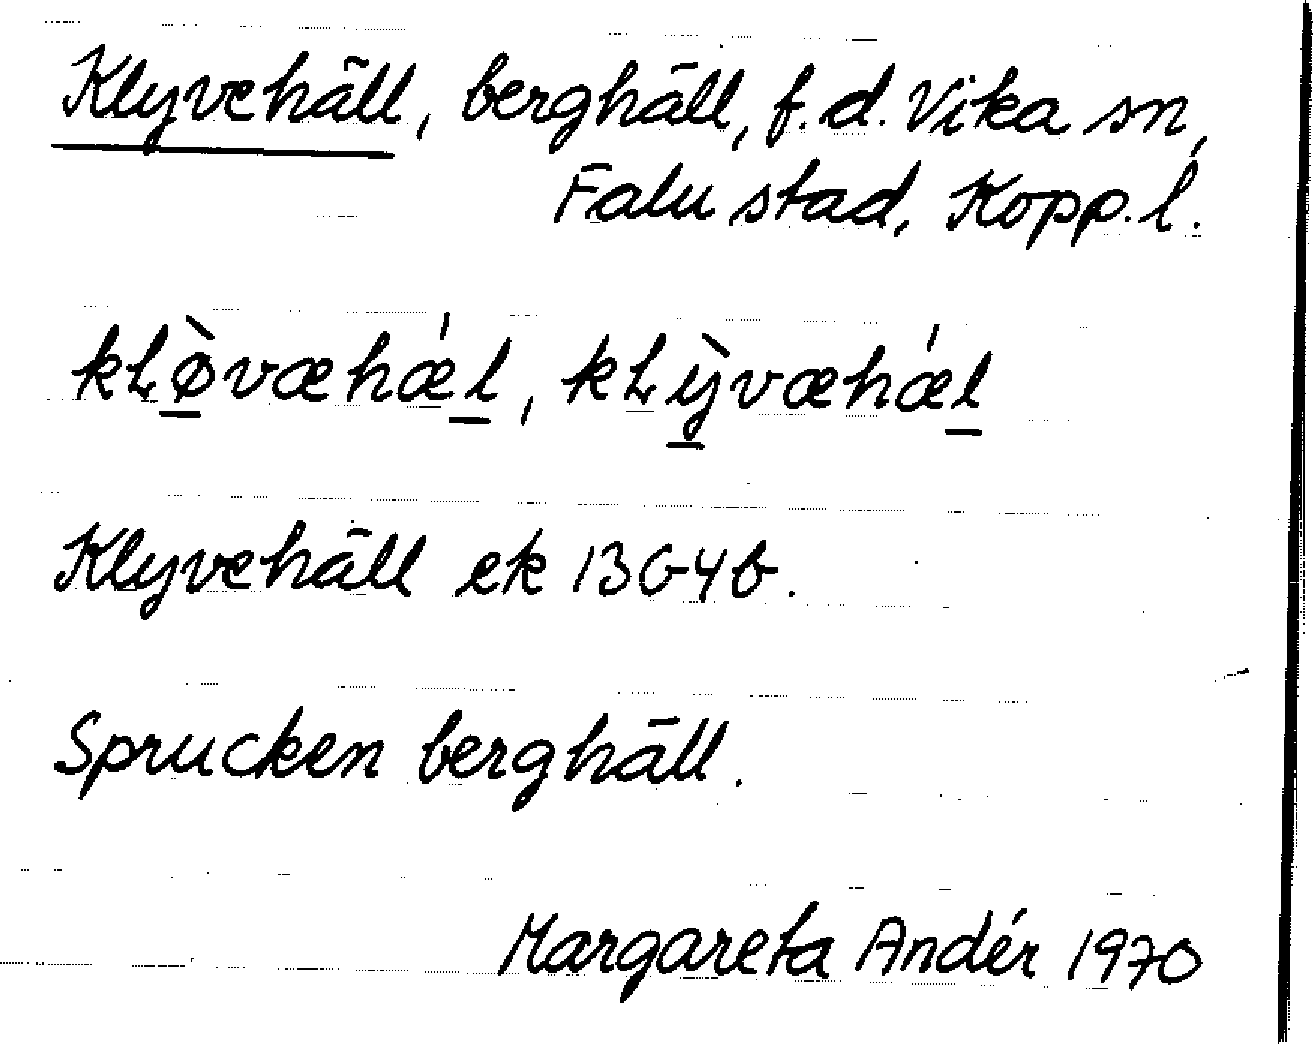 Klyvehäll, berghäll, f.d. Vika sn,
Falu stad, Kopp. l.
kLø̀væhǽl, kLỳvæhǽl
Klyvehäll ek 13G4b.
Sprucken berghäll.
Margareta Andér 1970